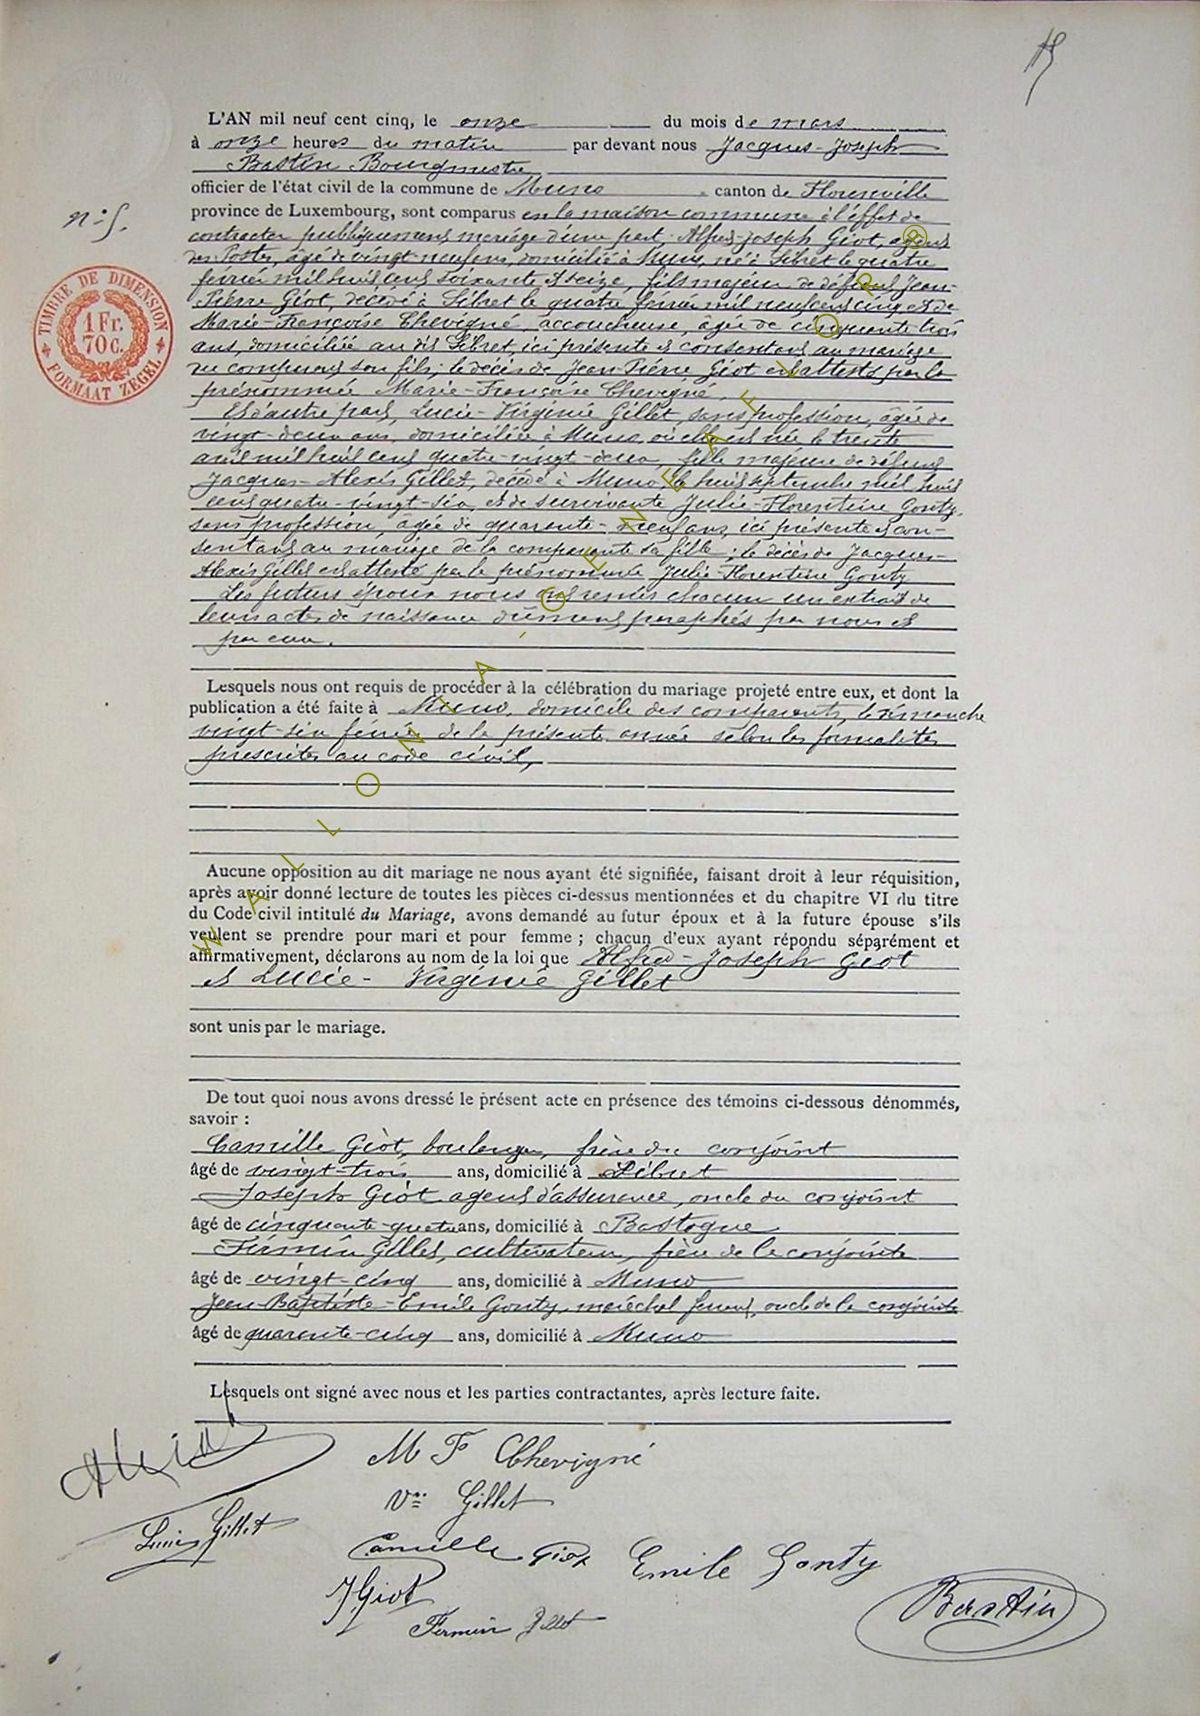 L'AN mil neuf cent cinq, le onze du mois de mars
à onze heures du matin par devant nous Jacques-Joseph
Bastin Bourgmestre
officier de l'état civil de la commune de Muno canton de Florenville
n: 5.
province de Luxembourg, sont comparus en la maison commune à l'effet de
contracter publiquement mariage d'une part, Alfred-Joseph Giot, agent
des Postes, âgé de vingt-neuf ans, domicilié à Muno, né à Sibret le quatre
février mil huit cent soixante et seize, fils majeur de défunt Jean-
Pierre Giot, décédé à Sibret le quatre février mil neuf cent cinq et de
Marie-Françoise Chevigné, accoucheuse, âgée de cinquante trois
ans, domiciliée au dit Sibret, ici présente et consentant au mariage
du comparant son fils; le décès de Jean-Pierre Giot est attesté par la
prénommée Marie-Françoise Chevigné.
Et d'autre part, Lucie-Virginie Gillet, sans profession, âgée de
vingt-deux ans, domiciliée à Muno, où elle est née le trente
avril mil huit cent quatre-vingt-deux, fille majeure de défunt
Jacques-Alexis Gillet, décédé à Muno, le huit septembre mil huit
cent quatre-vingt-six, et de survivante Julie-Florentine Gonty,
sans profession, âgée de quarante- ans, ici présente et con-
sentant au mariage de la comparante sa fille; le décès de Jacques-
Alexis Gillet est attesté par la prénommée Julie-Florentine Gonty
Les futurs époux nous ont remis chacun un extrait de
leurs actes de naissance dûment paraphés par nous et
par eux.
TIMBRE DE DIMENSION
1 Fr.
70 c.
FORMAAT ZEGEL
Lesquels nous ont requis de procéder à la célébration du mariage projeté entre eux, et dont la
publication a été faite à Muno, domicile des comparants, le dimanche
vingt-six février de la présente année selon les formalités
prescrites au code civil,
Aucune opposition au dit mariage ne nous ayant été signifiée, faisant droit à leur réquisition,
après avoir donné lecture de toutes les pièces ci-dessus mentionnées et du chapitre VI du titre
du Code civil intitulé du Mariage, avons demandé au futur époux et à la future épouse s'ils
veulent se prendre pour mari et pour femme ; chacun d'eux ayant répondu séparément et
affirmativement, déclarons au nom de la loi que Alfred-Joseph Giot
et Lucie-Virginie Gillet
sont unis par le mariage.
De tout quoi nous avons dressé le présent acte en présence des témoins ci-dessous dénommés,
savoir :
Camille Giot, boulanger, frère du conjoint
âgé de vingt-trois ans, domicilié à Sibret
Joseph Giot agent d'assurance, oncle du conjoint
âgé de cinquante-quatre ans, domicilié à Bastogne
Firmin Gillet, cultivateur, frère de la conjointe
âgé de vingt-cinq ans, domicilié à Muno
Jean-Baptiste-Emile Gonty, maréchal ferrant, oncle de la conjointe
âgé de quarante-cinq ans, domicilié à Muno
Lesquels ont signé avec nous et les parties contractantes, après lecture faite.
M F Chevigné
Vve Gillet
Lucie Gillet
Camille Giot
Emile Gonty
J Giot
Firmin Gillet
Bastin
WALLONIA-GENEAFLOR®